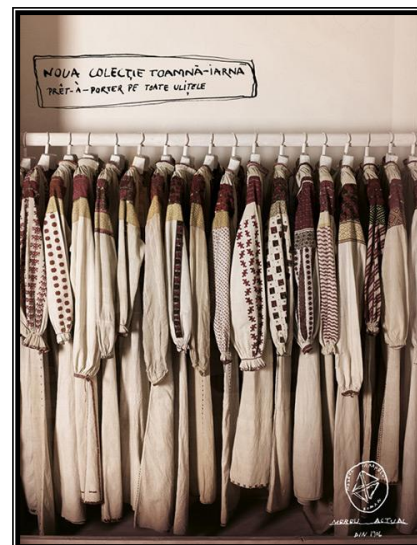 NOUA COLECȚIE TOAMNĂ-IARNA
PRÊT-À-PORTER PE TOATE ULIȚELE
MEREU ACTUAL
DIN 1906